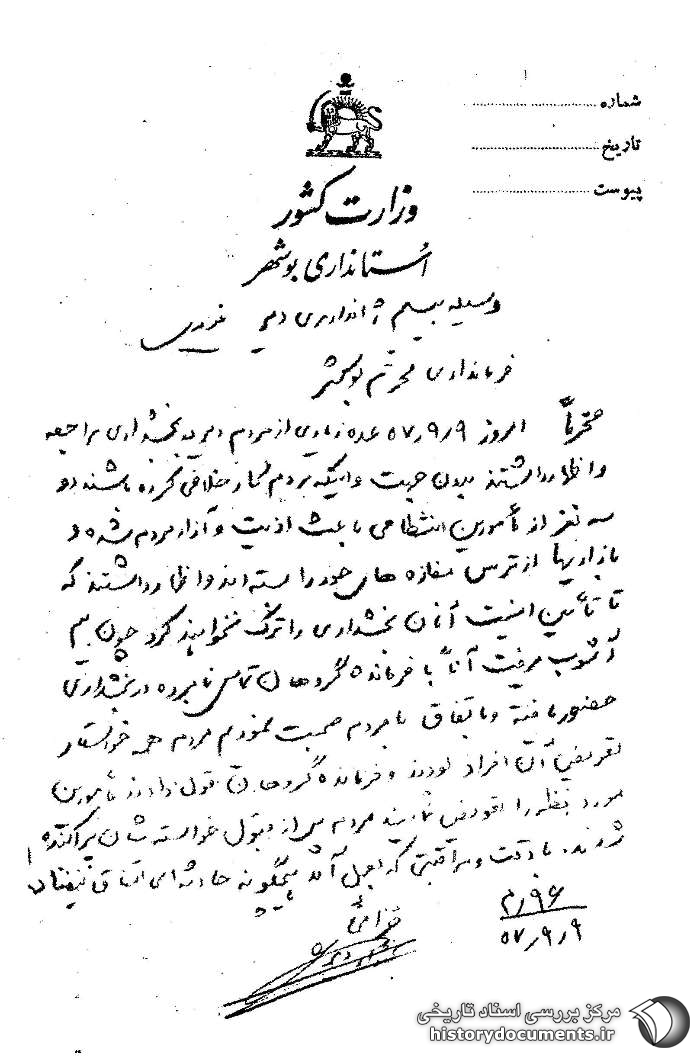 شماره
تاریخ
پیوست
وزارت کشور
استانداری بوشهر
وسیله بیسیم ژاندارمری دیر فوری
فرمانداری محترم بوشهر
محترماً امروز ۵۷٫۹٫۹ عده زیادی از مردم دیر به بخشداری مراجعه
و اظهار داشتند بدون جهت و اینکه مردم کار خلافی کرده باشند دو
سه نفر از مأمورین انتظامی باعث اذیت و آزار مردم شده و
بازاریها از ترس مغازه های خود را بسته اند و اظهار داشتند که
تا تأمین امنیت آنان بخشداری را ترک نخواهند کرد چون بیم
آشوب میرفت آناً با فرمانده گروهان تماس نامبرده در بخشداری
حضور یافته و باتفاق با مردم صحبت نمودیم مردم همه خواستار
تعویض آن افراد بودند و فرمانده گروهان قول دادند مأمورین
مورد نظر را تعویض نمایند مردم پس از قبول خواسته شان پراکنده
شدند. با دقت و مراقبتی که بعمل آمد هیچگونه حادثه ای اتفاق نیفتاد
۹۶٫م
۵۷٫۹٫۹
مرکز بررسی اسناد تاریخی
historydocuments.ir